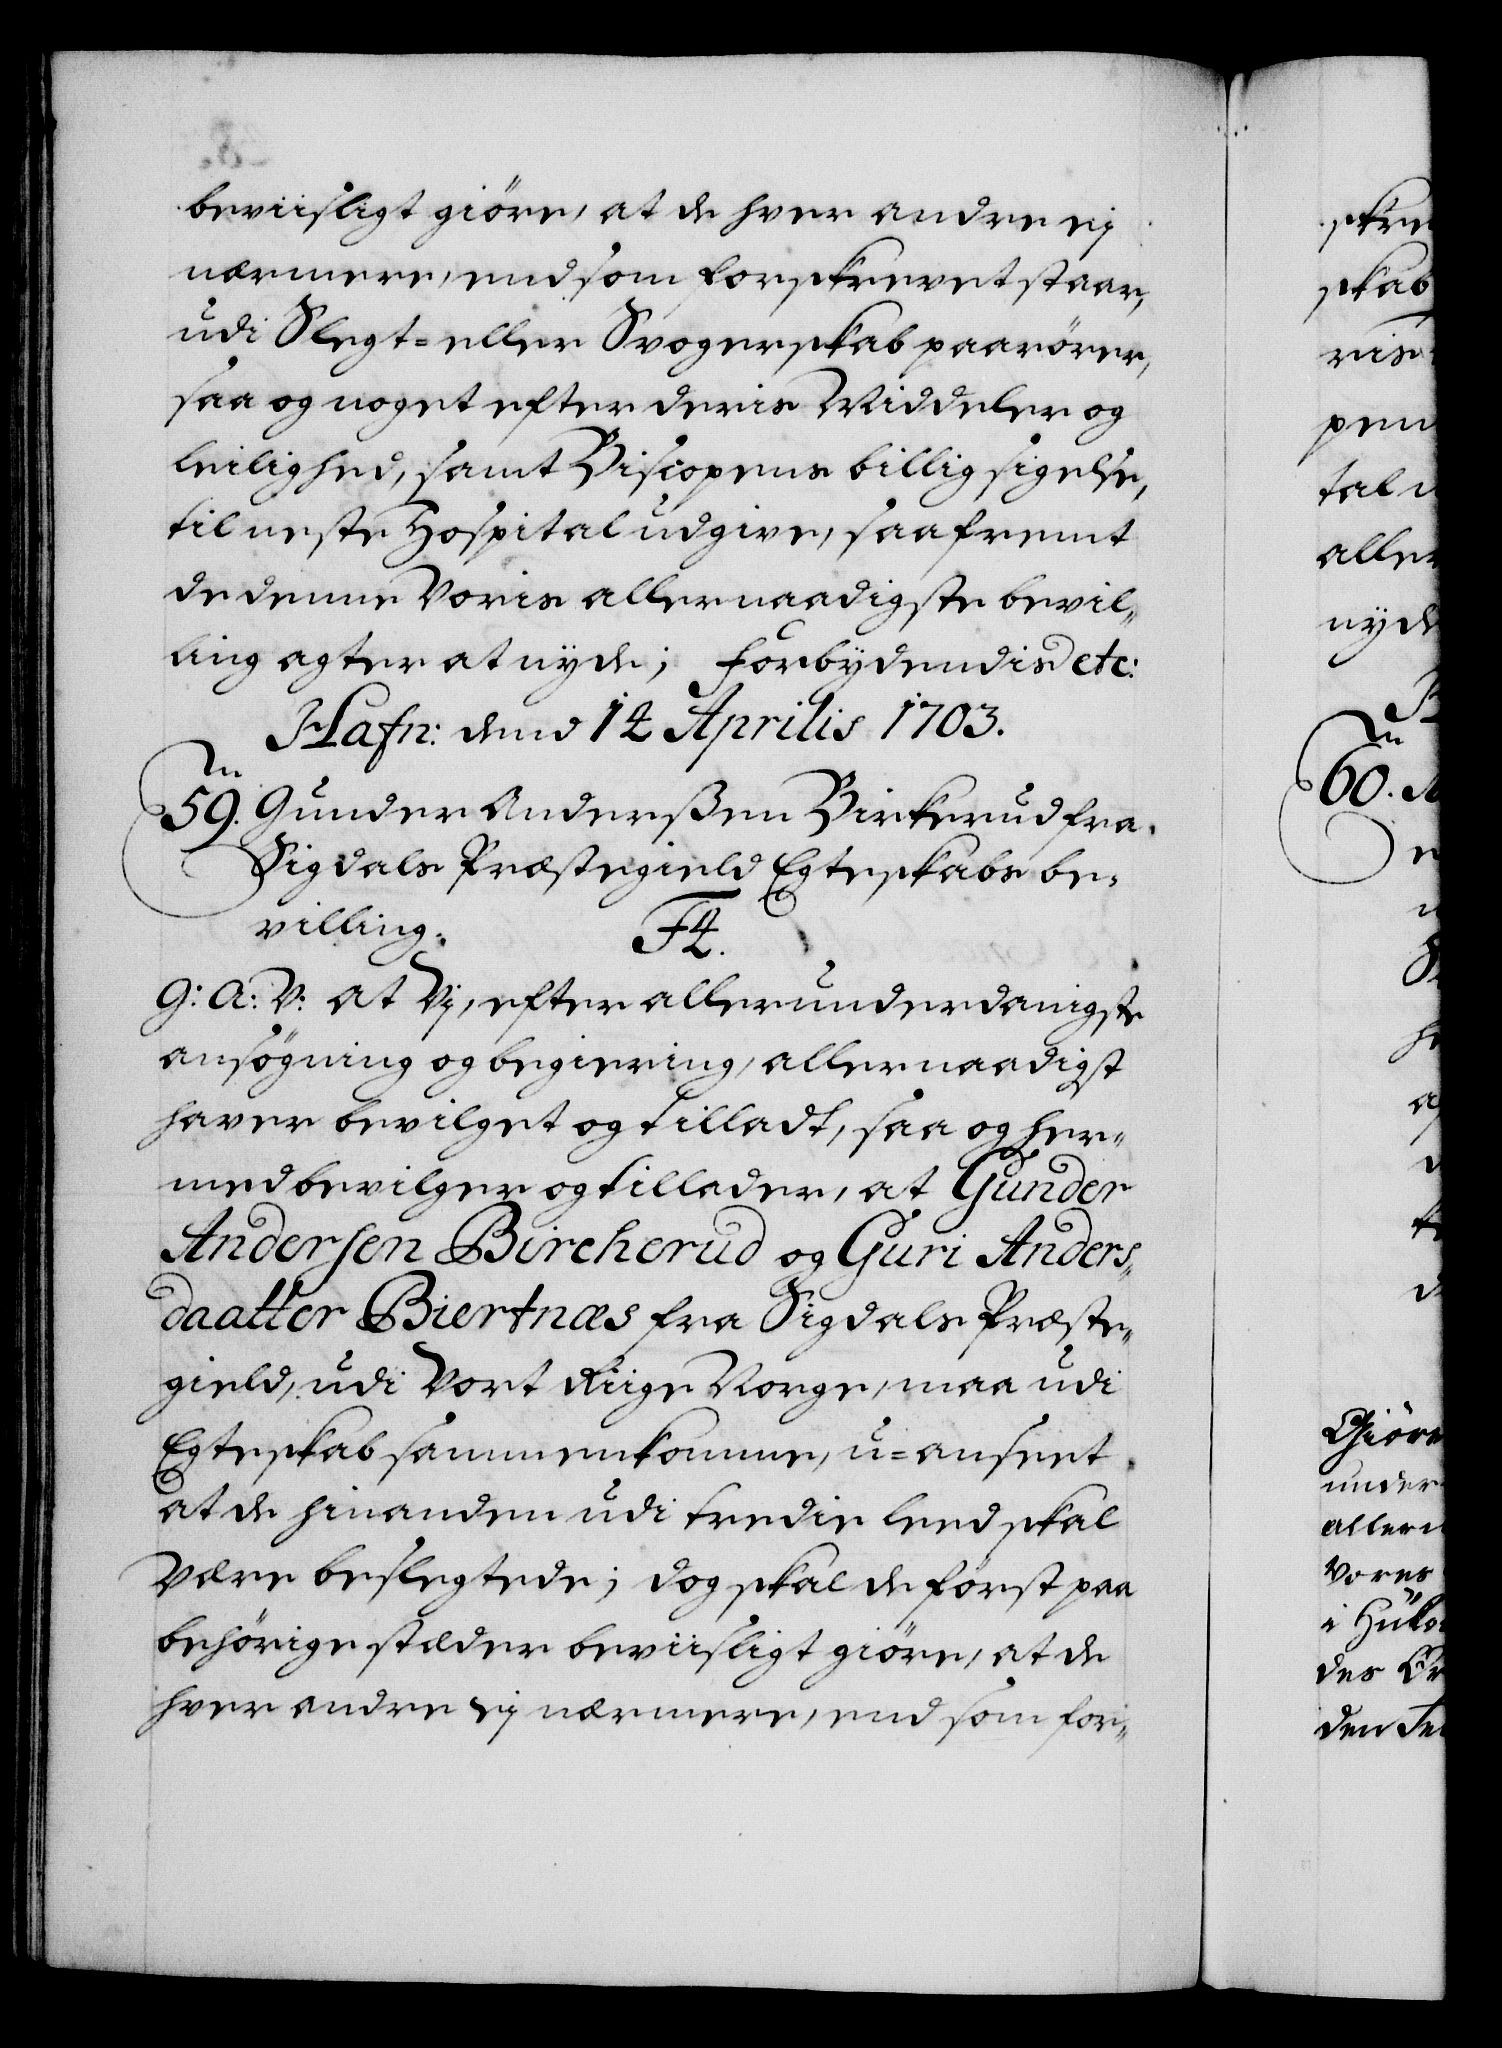 beviisligt giöre, at de hver andre eij
nærmere, end som forskrevet staar,
udi Slegt= eller Svogerskab paarörer,
saa og noget efter deris Middeler og
leilighed, samt Biscopens billig sigelse,
til neste Hospital udgive, saafremt
de denne Voris allernaadigste bevil„
ling agter at nyde; Forbydendis etc:
Hafn: dend 14 Aprilis 1703.
59. Gunder Anderßen Birkerud fra
Sigdals Præstegield Egteskabs be„
villing. F4.
G: A: V: at Vj, efter allerunderdanigste
ansögning og begiering, allernaadigst
haver bevilget og tilladt, saa og her„
med bevilger og tillader, at Gunder
Andersen Bircherud og Guri Anders„
daatter Biertnæs fra Sigdals Præste„
gield, udi Vort Riige Norge, maa udi
Egteskab sammenkomme, u=anseet
at de hinanden udi tredie leed skal
være beslegtede; dog skal de först paa
behörige stæder beviisligt giöre, at de
hver andre eij nærmere, end som for„
skre
skab
ris
pen
tal
aller
nyde
60.
Giöre
under
allern
Vores
i
des
den